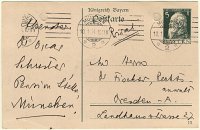 Königreich Bayern
Postkarte
Absender
Dr Oscar
Schuster
Pension Stella
München
Herrn
Dr Fischer, Rechts-
anwalt
Dresden-A.
Landhausstrasse 27